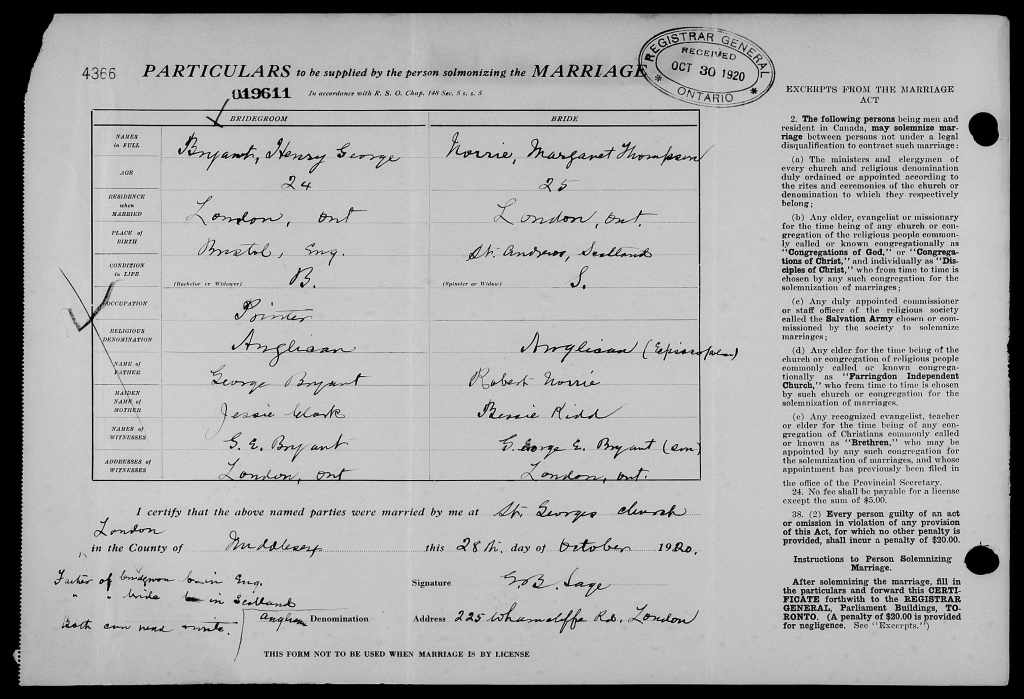 4366
PARTICULARS to be supplied by the person solmonizing the MARRIAGE
REGISTRAR GENERAL
RECEIVED
OCT 30 1920
ONTARIO
019611
In accordance with R. S. O. Chap. 148 Sec. 5 s. s. 5
BRIDEGROOM
BRIDE
NAMES in FULL
Bryant, Henry George
Norrie, Margaret Thompson
AGE
24
25
RESIDENCE when MARRIED
London, Ont
London, Ont.
PLACE of BIRTH
Bristol, Eng.
St. Andrews, Scotland
CONDITION in LIFE
(Bachelor or Widower) B.
(Spinster or Widow) S.
OCCUPATION
RELIGIOUS DENOMINATION
Anglican
Anglican (Episcopalian)
NAME of FATHER
George Bryant
Robert Norrie
MAIDEN NAME of MOTHER
Jessie Clark
Bessie Kidd
NAMES of WITNESSES
G. E. Bryant
George E. Bryant
ADDRESSES of WITNESSES
London, Ont
London, Ont.
I certify that the above named parties were married by me at St. Georges Church
London
in the County of Middlesex this 28th. day of October 1920.
Father of bridegroom b in Eng.
" " bride b in Scotland
Both can read & write.
Signature G. B. Sage
Anglican Denomination
Address 225 Wharncliffe Rd. London
THIS FORM NOT TO BE USED WHEN MARRIAGE IS BY LICENSE
EXCERPTS FROM THE MARRIAGE
ACT
2. The following persons being men and
resident in Canada, may solemnize mar-
riage between persons not under a legal
disqualification to contract such marriage:
(a) The ministers and clergymen of
every church and religious denomination
duly ordained or appointed according to
the rites and ceremonies of the church or
denomination to which they respectively
belong;
(b) Any elder, evangelist or missionary
for the time being of any church or con-
gregation of the religious people common-
ly called or known congregationally as
"Congregations of God," or "Congrega-
tions of Christ," and individually as "Dis-
ciples of Christ," who from time to time is
chosen by any such congregation for the
solemnization of marriages;
(c) Any duly appointed commissioner
or staff officer of the religious society
called the Salvation Army chosen or com-
missioned by the society to solemnize
marriages;
(d) Any elder for the time being of the
church or congregation of religious people
commonly called or known congrega-
tionally as "Farringdon Independent
Church," who from time to time is chosen
by such church or congregation for the
solemnization of marriages.
(e) Any recognized evangelist, teacher
or elder for the time being of any con-
gregation of Christians commonly called
or known as "Brethren," who may be
appointed by any such congregation for
the solemnization of marriages, and whose
appointment has previously been filed in
the office of the Provincial Secretary.
24. No fee shall be payable for a license
except the sum of $5.00.
38. (2) Every person guilty of an act
or omission in violation of any provision
of this Act, for which no other penalty is
provided, shall incur a penalty of $20.00.
Instructions to Person Solemnizing
Marriage.
After solemnizing the marriage, fill in
the particulars and forward this CERTI-
FICATE forthwith to the REGISTRAR
GENERAL, Parliament Buildings, TO-
RONTO. (A penalty of $20.00 is provided
for negligence. See "Excerpts.")